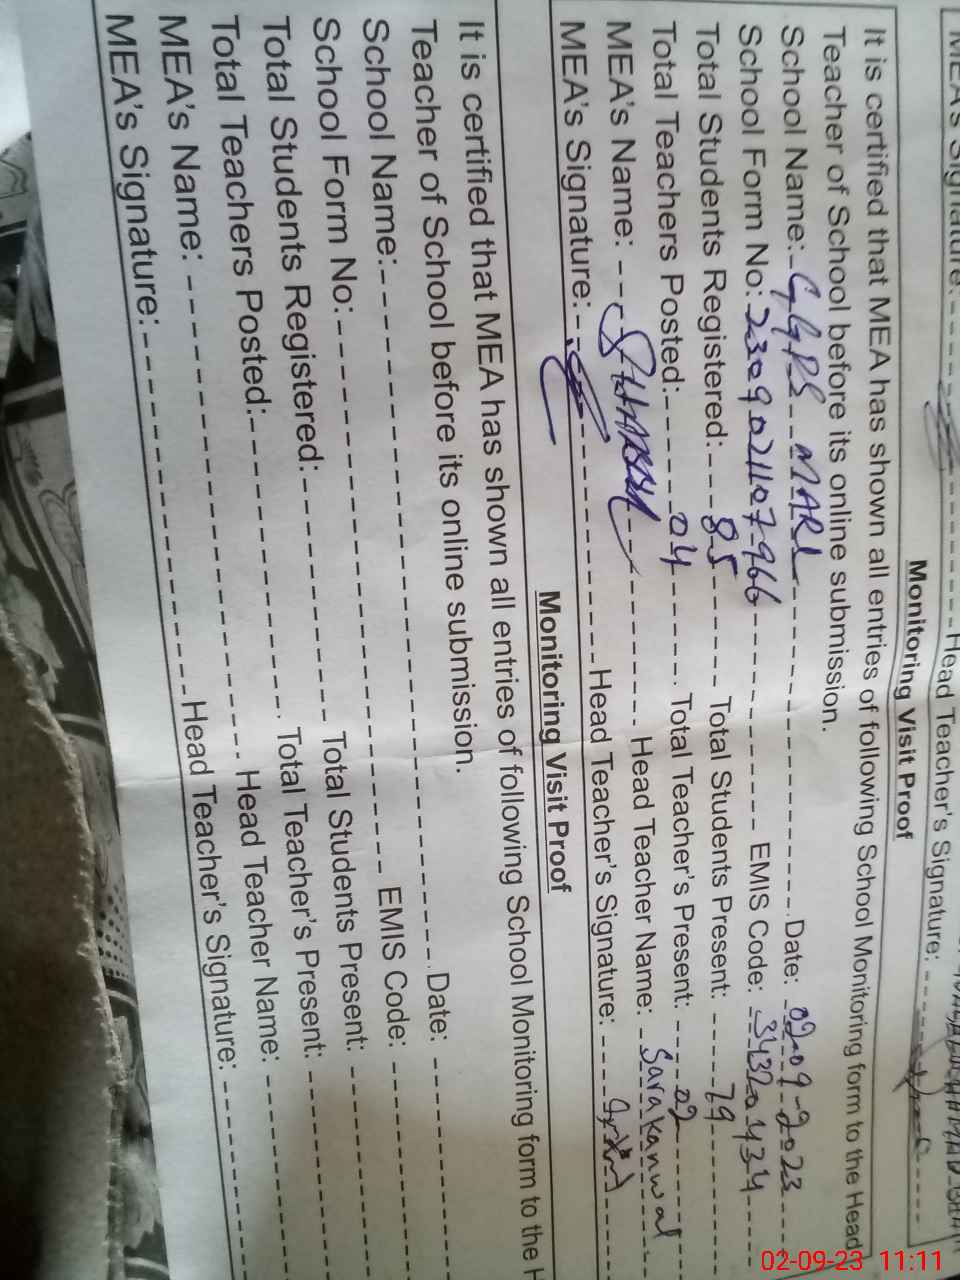 MEA's Signature: Head Teacher's Signature:
Monitoring Visit Proof
It is certified that MEA has shown all entries of following School Monitoring form to the Head
Teacher of School before its online submission.
School Name: GGPS MARI Date: 02-09-2023
School Form No: 2309021107966 EMIS Code: 34320434
Total Students Registered: 85 Total Students Present: 79
Total Teachers Posted: 04 Total Teacher's Present: 02
MEA's Name: Head Teacher Name: Sara kanwal
MEA's Signature: Head Teacher's Signature:
Monitoring Visit Proof
It is certified that MEA has shown all entries of following School Monitoring form to the H
Teacher of School before its online submission.
School Name: Date:
School Form No: EMIS Code:
Total Students Registered: Total Students Present:
Total Teachers Posted: Total Teacher's Present:
MEA's Name: Head Teacher Name:
MEA's Signature: Head Teacher's Signature:
02-09-23 11:11